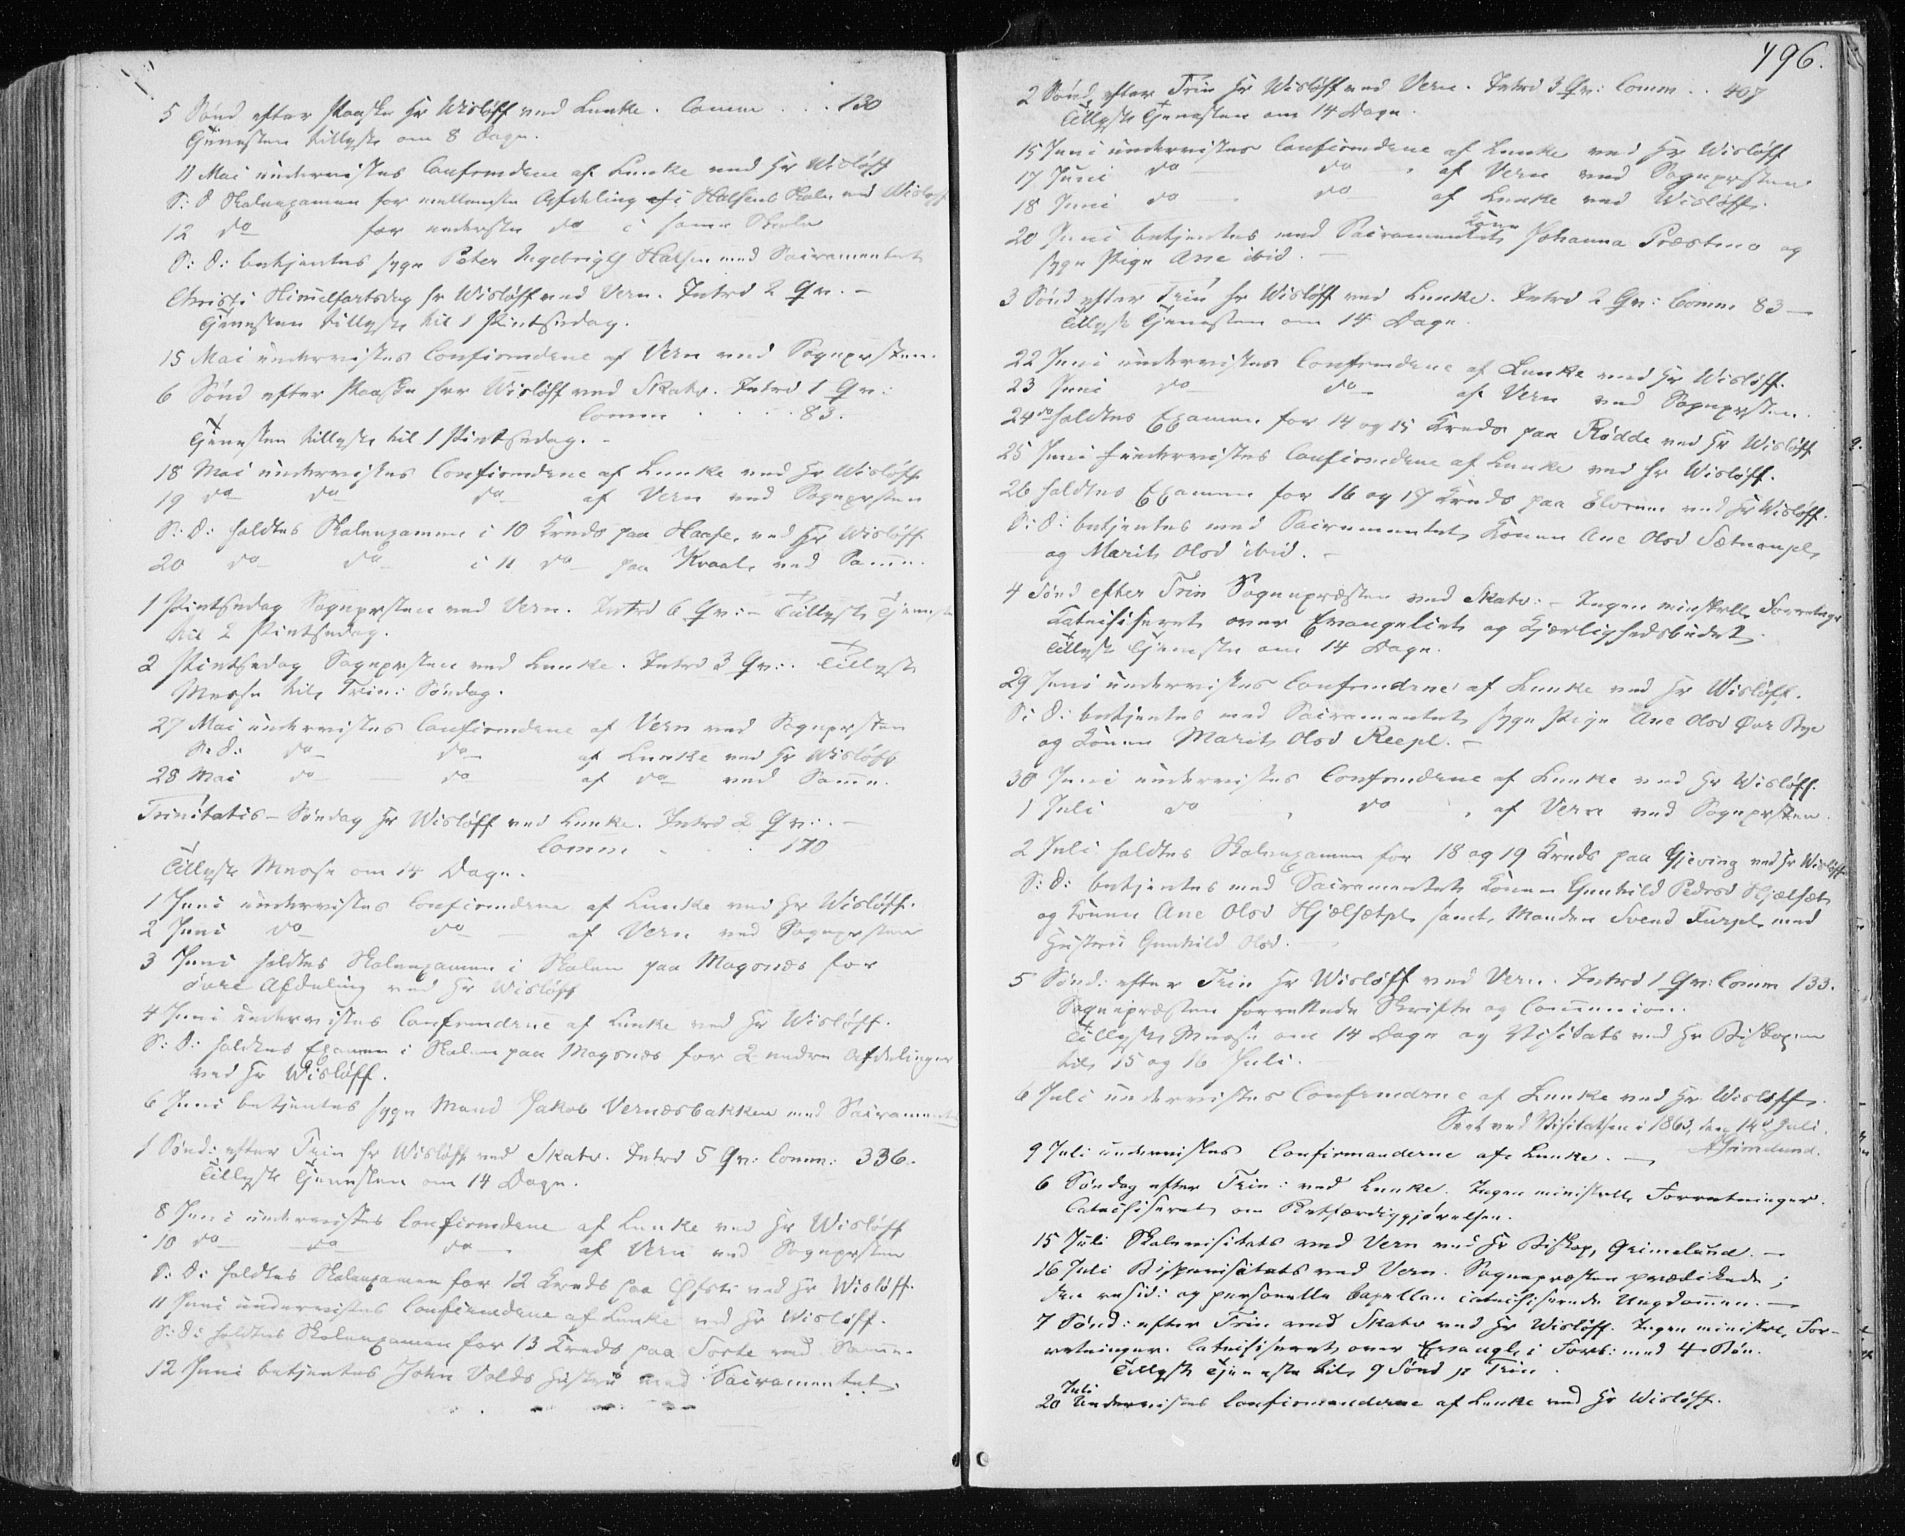 5 Sønd efter Paaske Hr Wisløff ved Lunke. Comm . . . 130
Tjenesten tillyst om 8 Dage.
11 Mai undervistes Confirmdene af Lunke ved Hr Wisløff
S: D Skoleexamen for mellemste Afdeling i Halsens Skole ved Wisløff
12 do for nederste do i samme Skole
S: D: betjentes syge Peter Ingebrigts Halsen med Sacramentet
Christi Himmelfartsdag Hr Wisløff ved Vern. Introd 2 Qv. –
Tjenesten tillyst til 1 Pintsedag.
15 Mai undervistes Confirmdene af Vern ved Sognepresten.
6 Sønd efter Paaske Herr Wisløff ved Skatv. Introd 1 Qv:
Comm . . . . 83.
Tjenesten tillyst til 1 Pintsedag. –
18 Mai undervistes Confirmdene af Lunke ved Hr Wisløff
19 do do do af Vern ved Sognepresten
S: D: holdtes Skoleexamen i 10 Kreds paa ved Hr Wisløff
20 do do i 11 do paa Kvaal, ved Samme.
1 Pintsedag Sognepresten ved Vern. Introd 6 Qv: – Tillyst Tjeneste
til 2 Pintsedag.
2 Pintsedag Sognepresten ved Lunke. Introd 3 Qv: Tillyst
Messe til Trin: Søndag.
27 Mai undervistes Confirmdene af Vern ved Sognepresten
S: D: do do af Lunke ved Hr Wisløff
28 Mai do – do af do ved Samme.
Trinitatis – Søndag Hr Wisløff ved Lunke. Introd 2 Qv: . –
Comm . . . 170
Tillyst Messe om 14 Dage.
1 Juni undervistes Confirmdene af Lunke ved Hr Wisløff.
2 Juni do do – af Vern ved Sognepresten
3 Juni holdtes Skoleexamen i Skolen paa Mogsnæs for
øvre Afdeling ved Hr Wisløff
4 Juni undervistes Confirmdene af Lunke ved Hr Wisløff.
S: D: holdtes Examen i Skolen paa Mogsnæs for 2 nedre Afdelinger
ved Hr Wisløff.
6 Juni betjentes syge Mand Jakob Vernæsbakken med Sacramentet
1 Sønd: efter Trin Hr Wisløff ved Skatv. Introd 5 Qv: Comm: 336.
Tillyst Tjenesten om 14 Dage.
8 Juni undervistes Confirmdene af Lunke ved Hr Wisløff
10 do do do af Vern ved Sognepresten
S: D: holdtes Skoleexamen for 12 Kreds paa Øfsti ved Hr Wisløff.
11 Juni undervistes Confirmdene af Lunke ved Hr Wisløff.
S: D: holdtes Skoleexamen for 13 Kreds paa Torte ved Samme.
12 Juni betjentes John Volds Hustru med Sacramentet.
496.
2 Sønd efter Trin Hr Wisløff ved Vern. Introd 3 Qv: Comm . . 407
Tillyst Tjenesten om 14 Dage.
15 Juni undervistes Confirmdene af Lunke ved Hr Wisløff
17 Juni do – do . af Vern ved Sognepresten
18 Juni do – . do af Lunke ved Wisløff.
20 Juni betjentes med Sacramentet Kone Johanna Præstmo og
syge Pige Ane ibid. –
3 Sønd efter Trin Hr Wisløff ved Lunke. Introd 2 Qv: Comm 83 –
Tillyst Tjenesten om 14 Dage.
22 Juni undervistes Confirmdene af Lunke ved Hr Wisløff.
23 Juni do do af Vern ved Sognepresten.
24 do holdtes Examen for 14 og 15 Kreds paa Rødde ved Hr Wisløff
25 Juni undervistes Confirmdene af Lunke ved Hr Wisløff.
26 holdtes Examen for 16 og 17 Kreds paa Elvrum ved Hr Wisløff.
S: D: betjentes med Sacramentet Konen Ane Olsd
og Marit Olsd ibid. –
4 Sønd efter Trin Sognepræsten ved Skatv: – Ingen minsterll Forretninger
Katechiseret over Evangeliet og Kjærlighedsbudet.
Tillyst Tjeneste om 14 Dage.
29 Juni undervistes Confirmdene af Lunke ved Hr Wisløff.
S: D: betjentes med Sacramentet syge Pige Ane Olsd Øvr Bye
og Konen Marit Olsd Reepl. –
30 Juni undervistes Confirmdene af Lunke ved Hr Wisløff.
1 Juli do , do , af Vern ved Sognepresten.
2 Juli holdtes Skoleexamen for 18 og 19 Kreds paa Gjeving ved Hr Wisløff
S: D: betjentes med Sacramentet Konen Gunhild Pedersd Hjelsæt,
og Konen Ane Olsd Hjelsætpl, samt Manden Svend med
Hustru Gunhild Olsd. –
5 Sønd: efter Trin Hr Wisløff ved Vern. Introd 1 Qv: Comm 133.
Sognepræsten forrettede Skrifte og Communion.
Tillyst Messe om 14 Dage og Visitats ved Hr Biskopen
til 15 og 16 Juli.
6 Juli undervistes Confirmdene af Lunke ved Hr Wisløff.
Seet ved Visitatsen i 1863, den 14d Juli.
AGrimelund.
9 Juli undervistes Confirmanderne af Lunke. –
6 Søndag efter Trin: ved Lunke. Ingen ministrlle Forretninger.
Catechiseret om Retfærdiggjørelsen.
15 Juli Skolevisitats ved Vern ved Hr Biskop, Grimelund. –
16 Juli Bispevisitats ved Vern. Sognepræsten prædikede;
den resid: og personelle Capellan catechiserede Ungdommen. –
7 Sønd: efter Trin ved Skatv ved Hr Wisløff. Ingen ministrl, For-
retninger. Catechiseret over Evangl, i Forb: med 4 Bøn.
Tillyst Tjeneste til 9 Sønd p Trin.
20 Juli Undervistes Confirmanderne af Lunke ved Hr Wisløff.